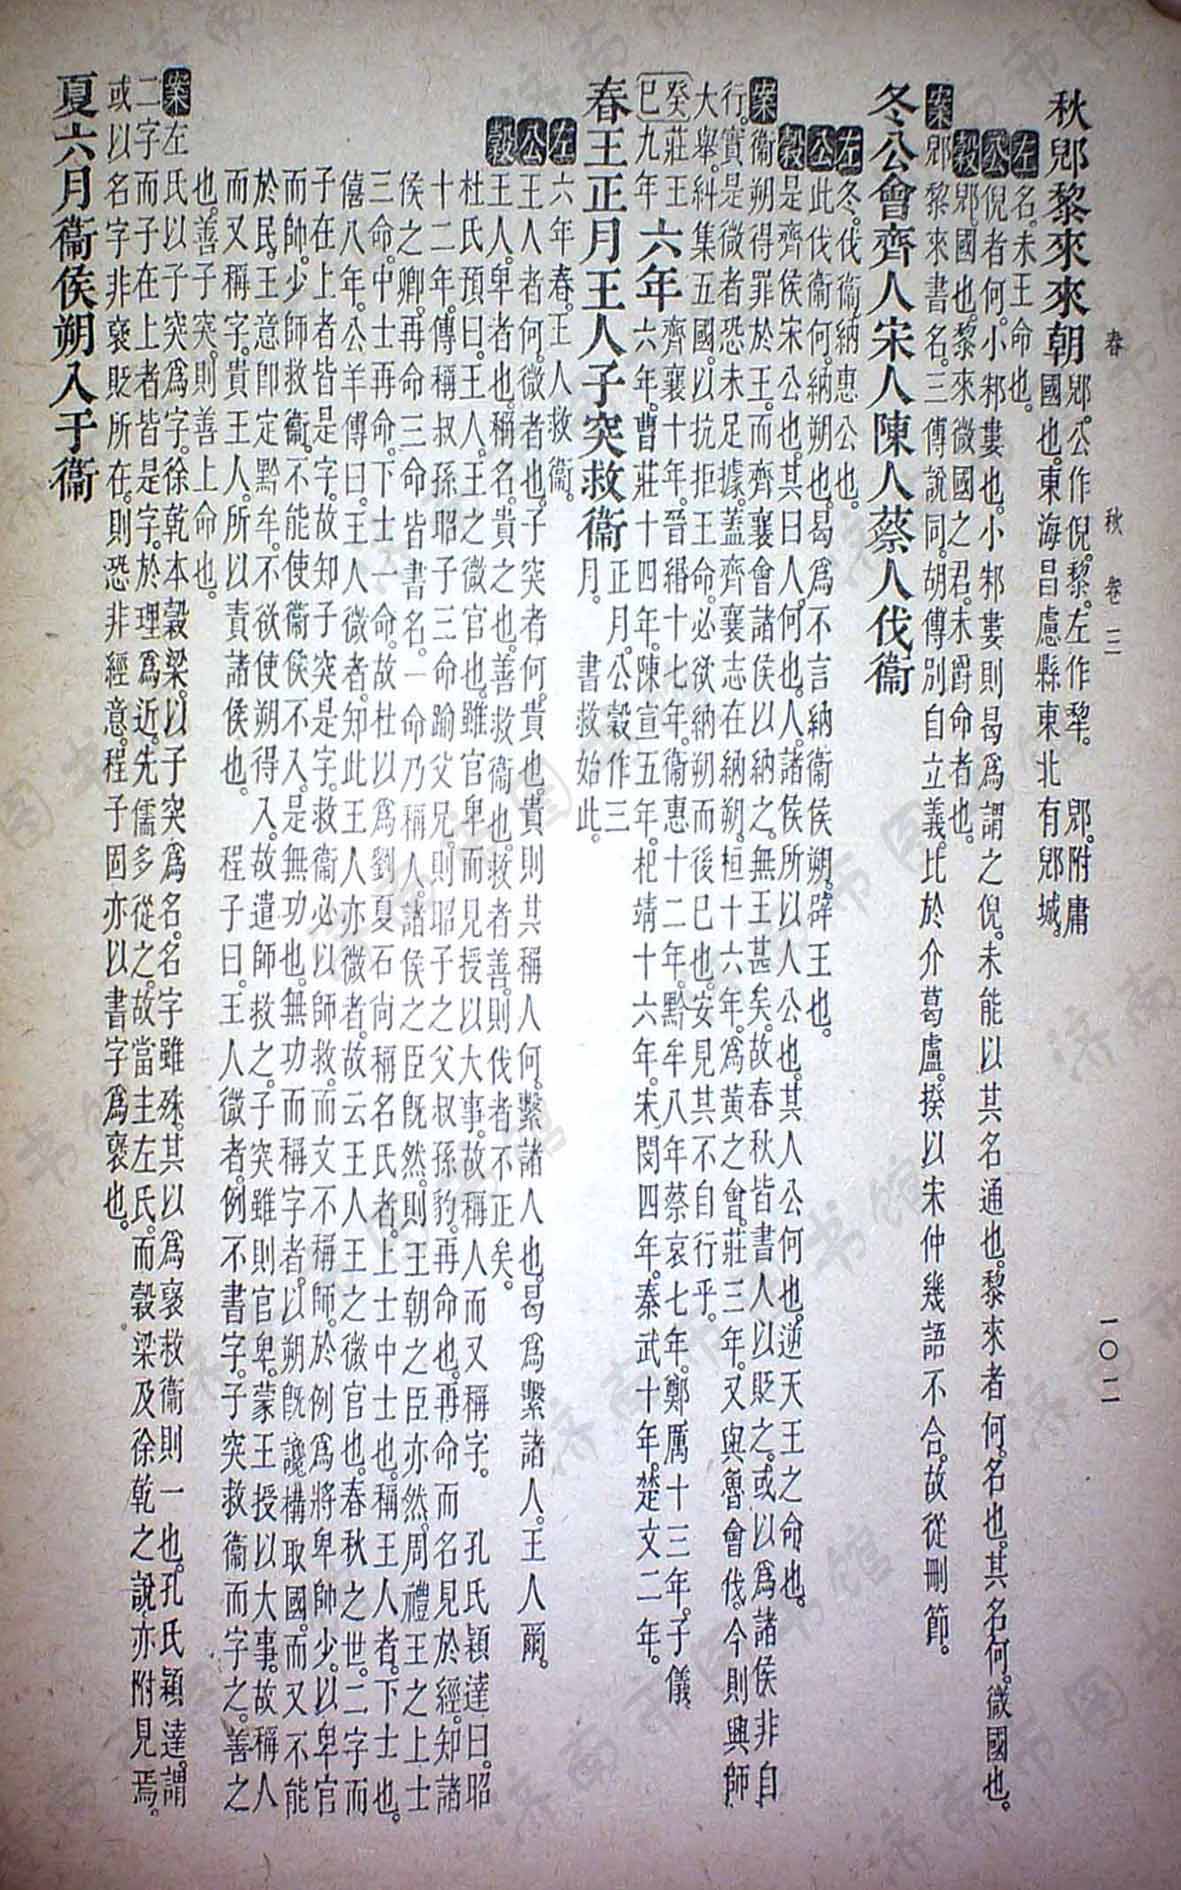 春秋 卷三 一〇二
秋郳黎來來朝 郳。公作倪。黎。左作犁。 郳。附庸
國也。東海昌慮縣東北有郳城。
左 名。未王命也。
公 倪者何。小邾婁也。小邾婁則曷爲謂之倪。未能以其名通也。黎來者何。名也。其名何。微國也。
穀 郳。國也。黎來微國之君。未爵命者也。
案 郳黎來書名。三傳說同。胡傳別自立義。比於介葛盧。揆以宋仲幾語不合。故從刪節。
冬公會齊人宋人陳人蔡人伐衞
左 冬。伐衞。納惠公也。
公 此伐衞何。納朔也。曷爲不言納衞侯朔。辟王也。
穀 是齊侯宋公也。其曰人。何也。人諸侯所以人公也。其人公何也。逆天王之命也。
案 衞朔得罪於王。而齊襄會諸侯以納之。無王甚矣。故春秋皆書人以貶之。或以爲諸侯非自
行。實是微者。恐未足據。蓋齊襄志在納朔。桓十六年。爲黃之會。莊三年。又與魯會伐。今則興師
大舉。糾集五國。以抗拒王命。必欲納朔而後已也。安見其不自行乎。
癸巳 莊王九年 六年 齊襄十年。晉緡十七年。衞惠十二年。黔牟八年。蔡哀七年。鄭厲十三年。子儀
六年。曹莊十四年。陳宣五年。杞靖十六年。宋閔四年。秦武十年。楚文二年。
春王正月王人子突救衞 正月。公穀作三
月。 書救始此。
左 六年。春。王人救衞。
公 王人者何。微者也。子突者何。貴也。貴則其稱人何。繫諸人也。曷爲繫諸人。王人爾。
穀 王人。卑者也。稱名。貴之也。善救衞也。救者善。則伐者不正矣。
杜氏預曰。王人。王之微官也。雖官卑而見授以大事。故稱人而又稱字。 孔氏穎達曰。昭
十二年。傳稱叔孫昭子三命踰父兄。則昭子之父叔孫豹。再命也。再命而名見於經。知諸
侯之卿。再命三命皆書名。一命乃稱人。諸侯之臣旣然。則王朝之臣亦然。周禮王之上士
三命。中士再命。下士一命。故杜以爲劉夏石尚稱名氏者。上士中士也。稱王人者。下士也。
僖八年。公羊傳曰。王人微者。知此王人亦微者。故云王人王之微官也。春秋之世。二字而
子在上者。皆是字。故知子突是字。救衞必以師救。而文不稱師。於例爲將卑帥少。以卑官
而帥少師救衞。不能使衞侯不入。是無功也。無功而稱字者。以朔旣讒構取國。而又不能
於民。王意卽定黔牟。不欲使朔得入。故遣師救之。子突雖則官卑。蒙王授以大事。故稱人
而又稱字。貴王人。所以責諸侯也。 程子曰。王人微者。例不書字。子突救衞而字之。善之
也。善子突。則善上命也。
案 左氏以子突爲字。徐乾本穀梁。以子突爲名。名字雖殊。其以爲襃救衞則一也。孔氏穎達。謂
二字而子在上者皆是字。於理爲近。先儒多從之。故當主左氏。而穀梁及徐乾之說亦附見焉。
或以名字非襃貶所在。則恐非經意。程子固亦以書字爲襃也。
夏六月衞侯朔入于衞
济南市图书馆